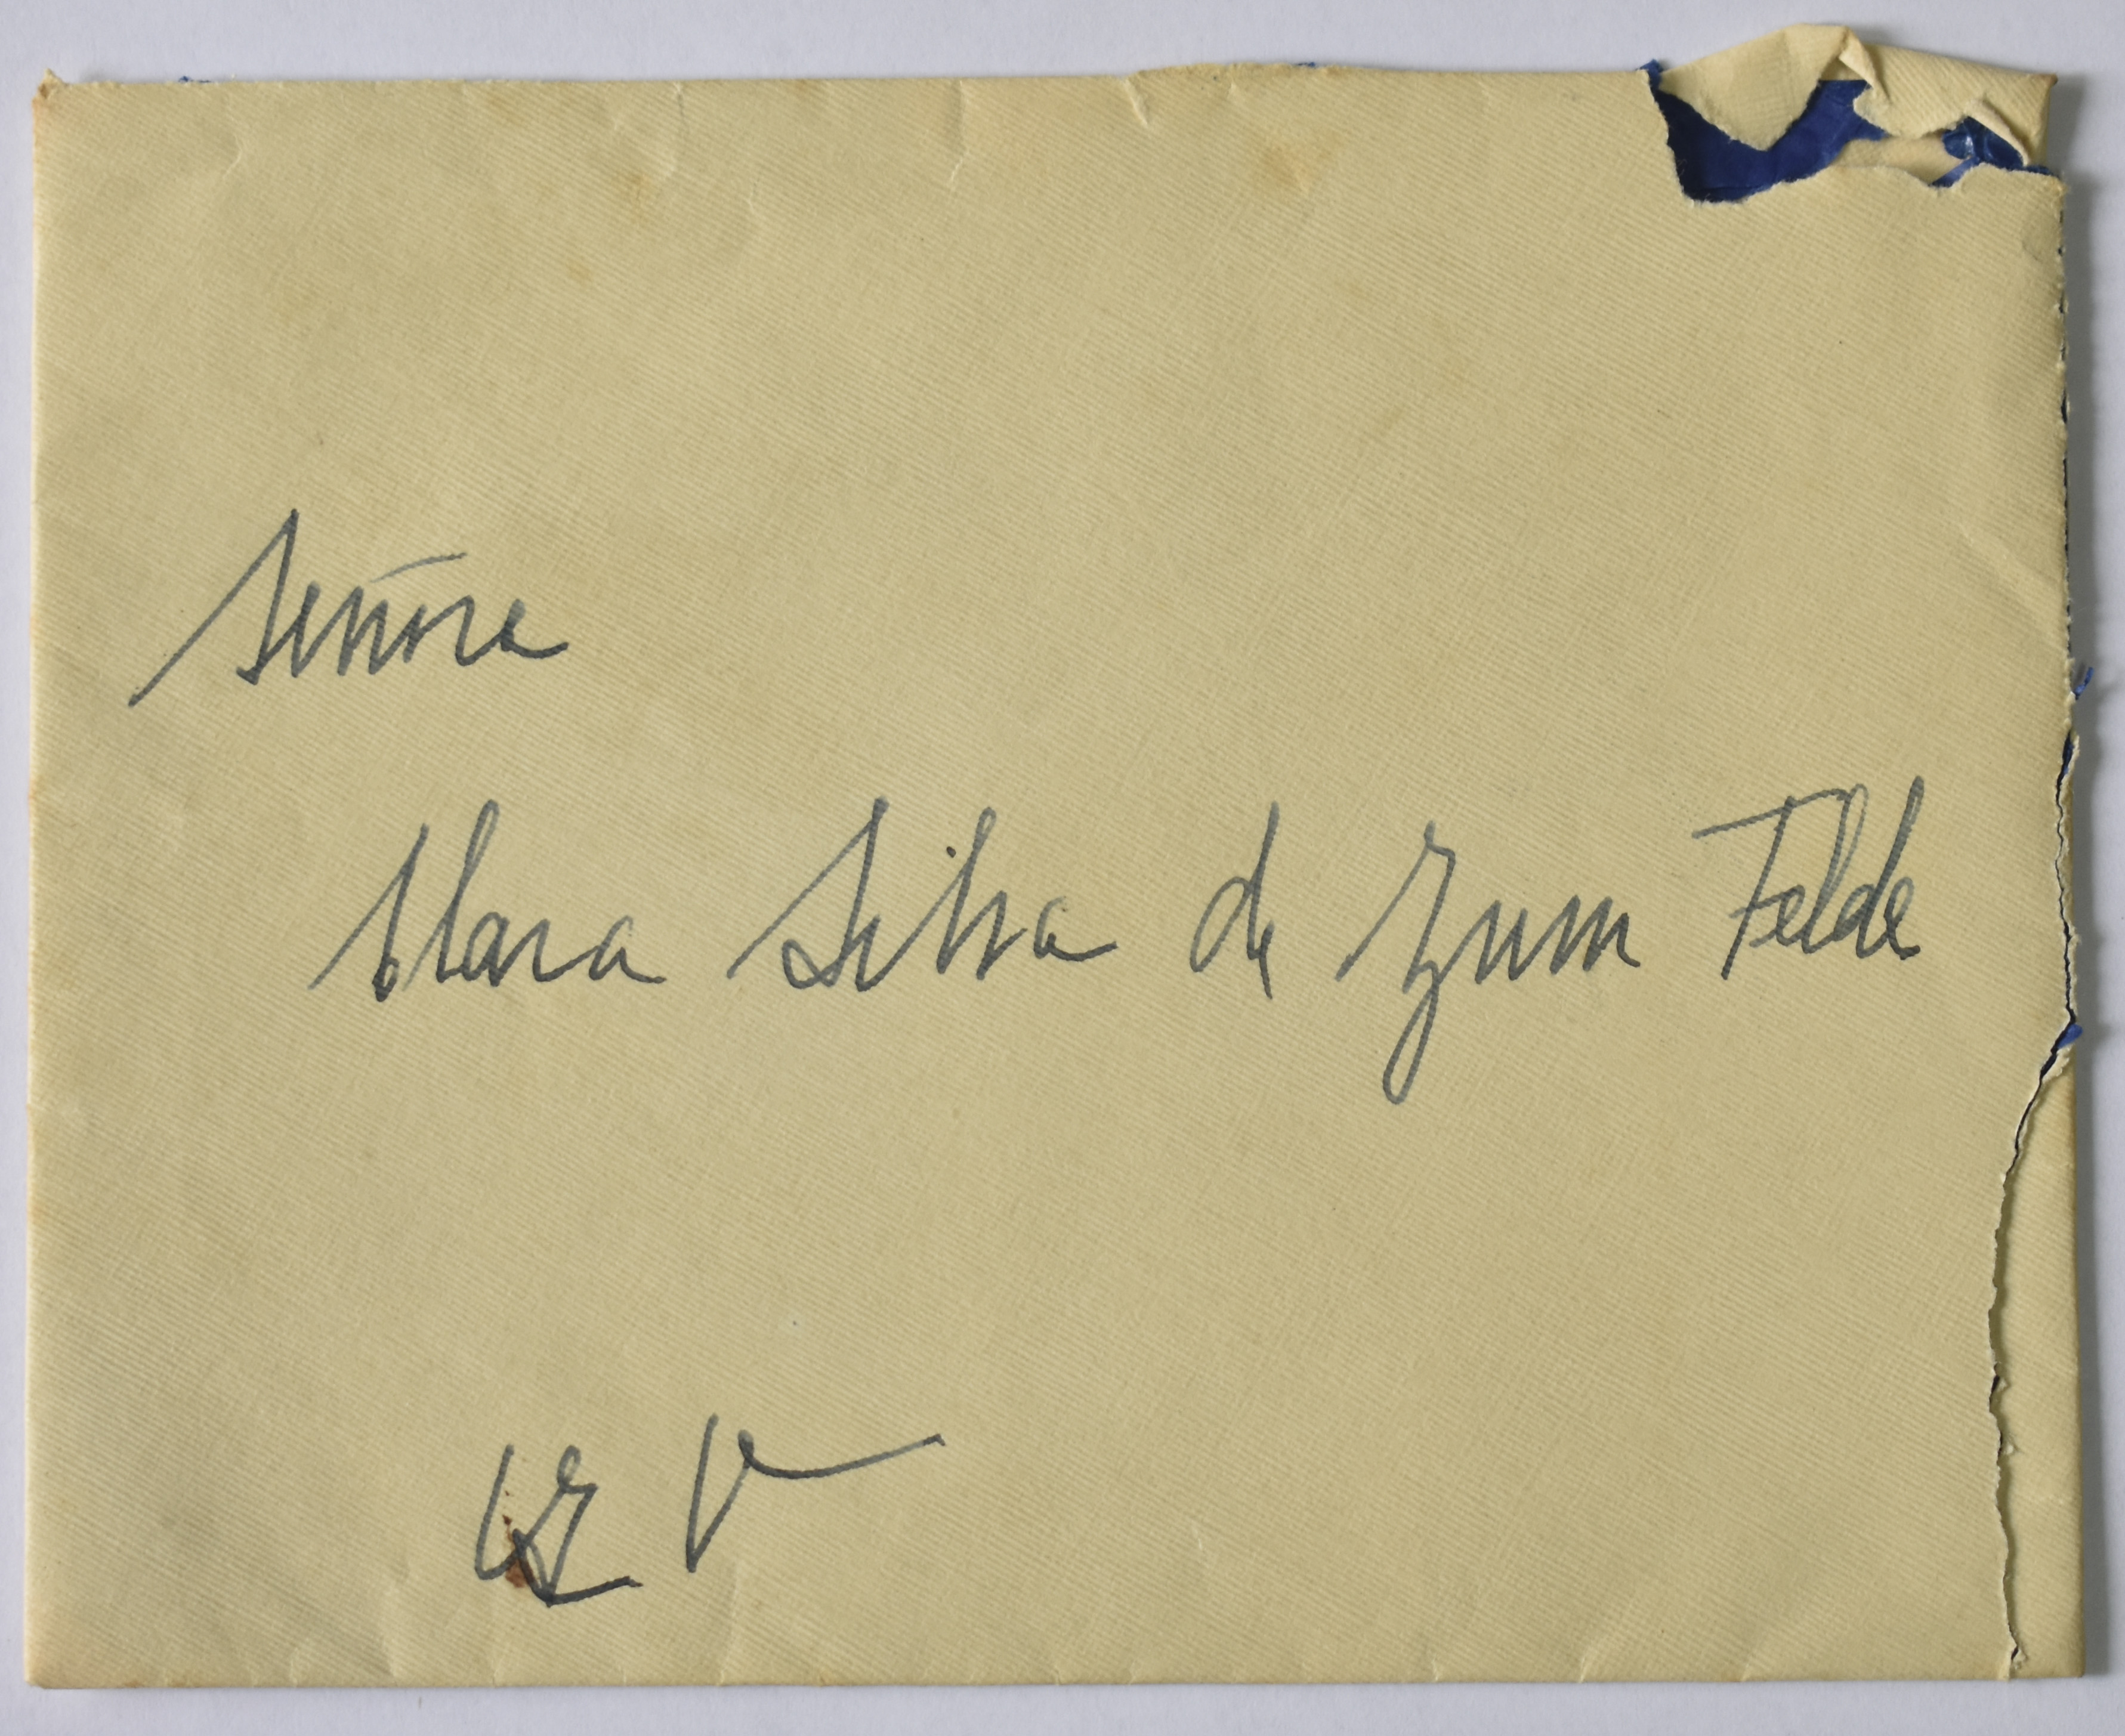 Señora
Clara Silva de Zum Felde